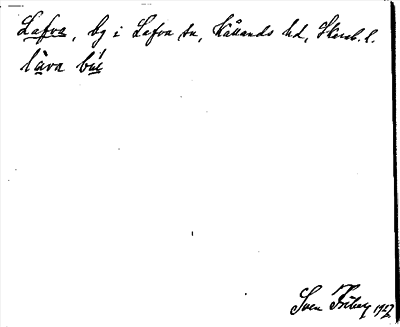 Lafva, by i Lafva sn, Kållands hd, Skarab. l.
lava bu
Sven Friberg 1927